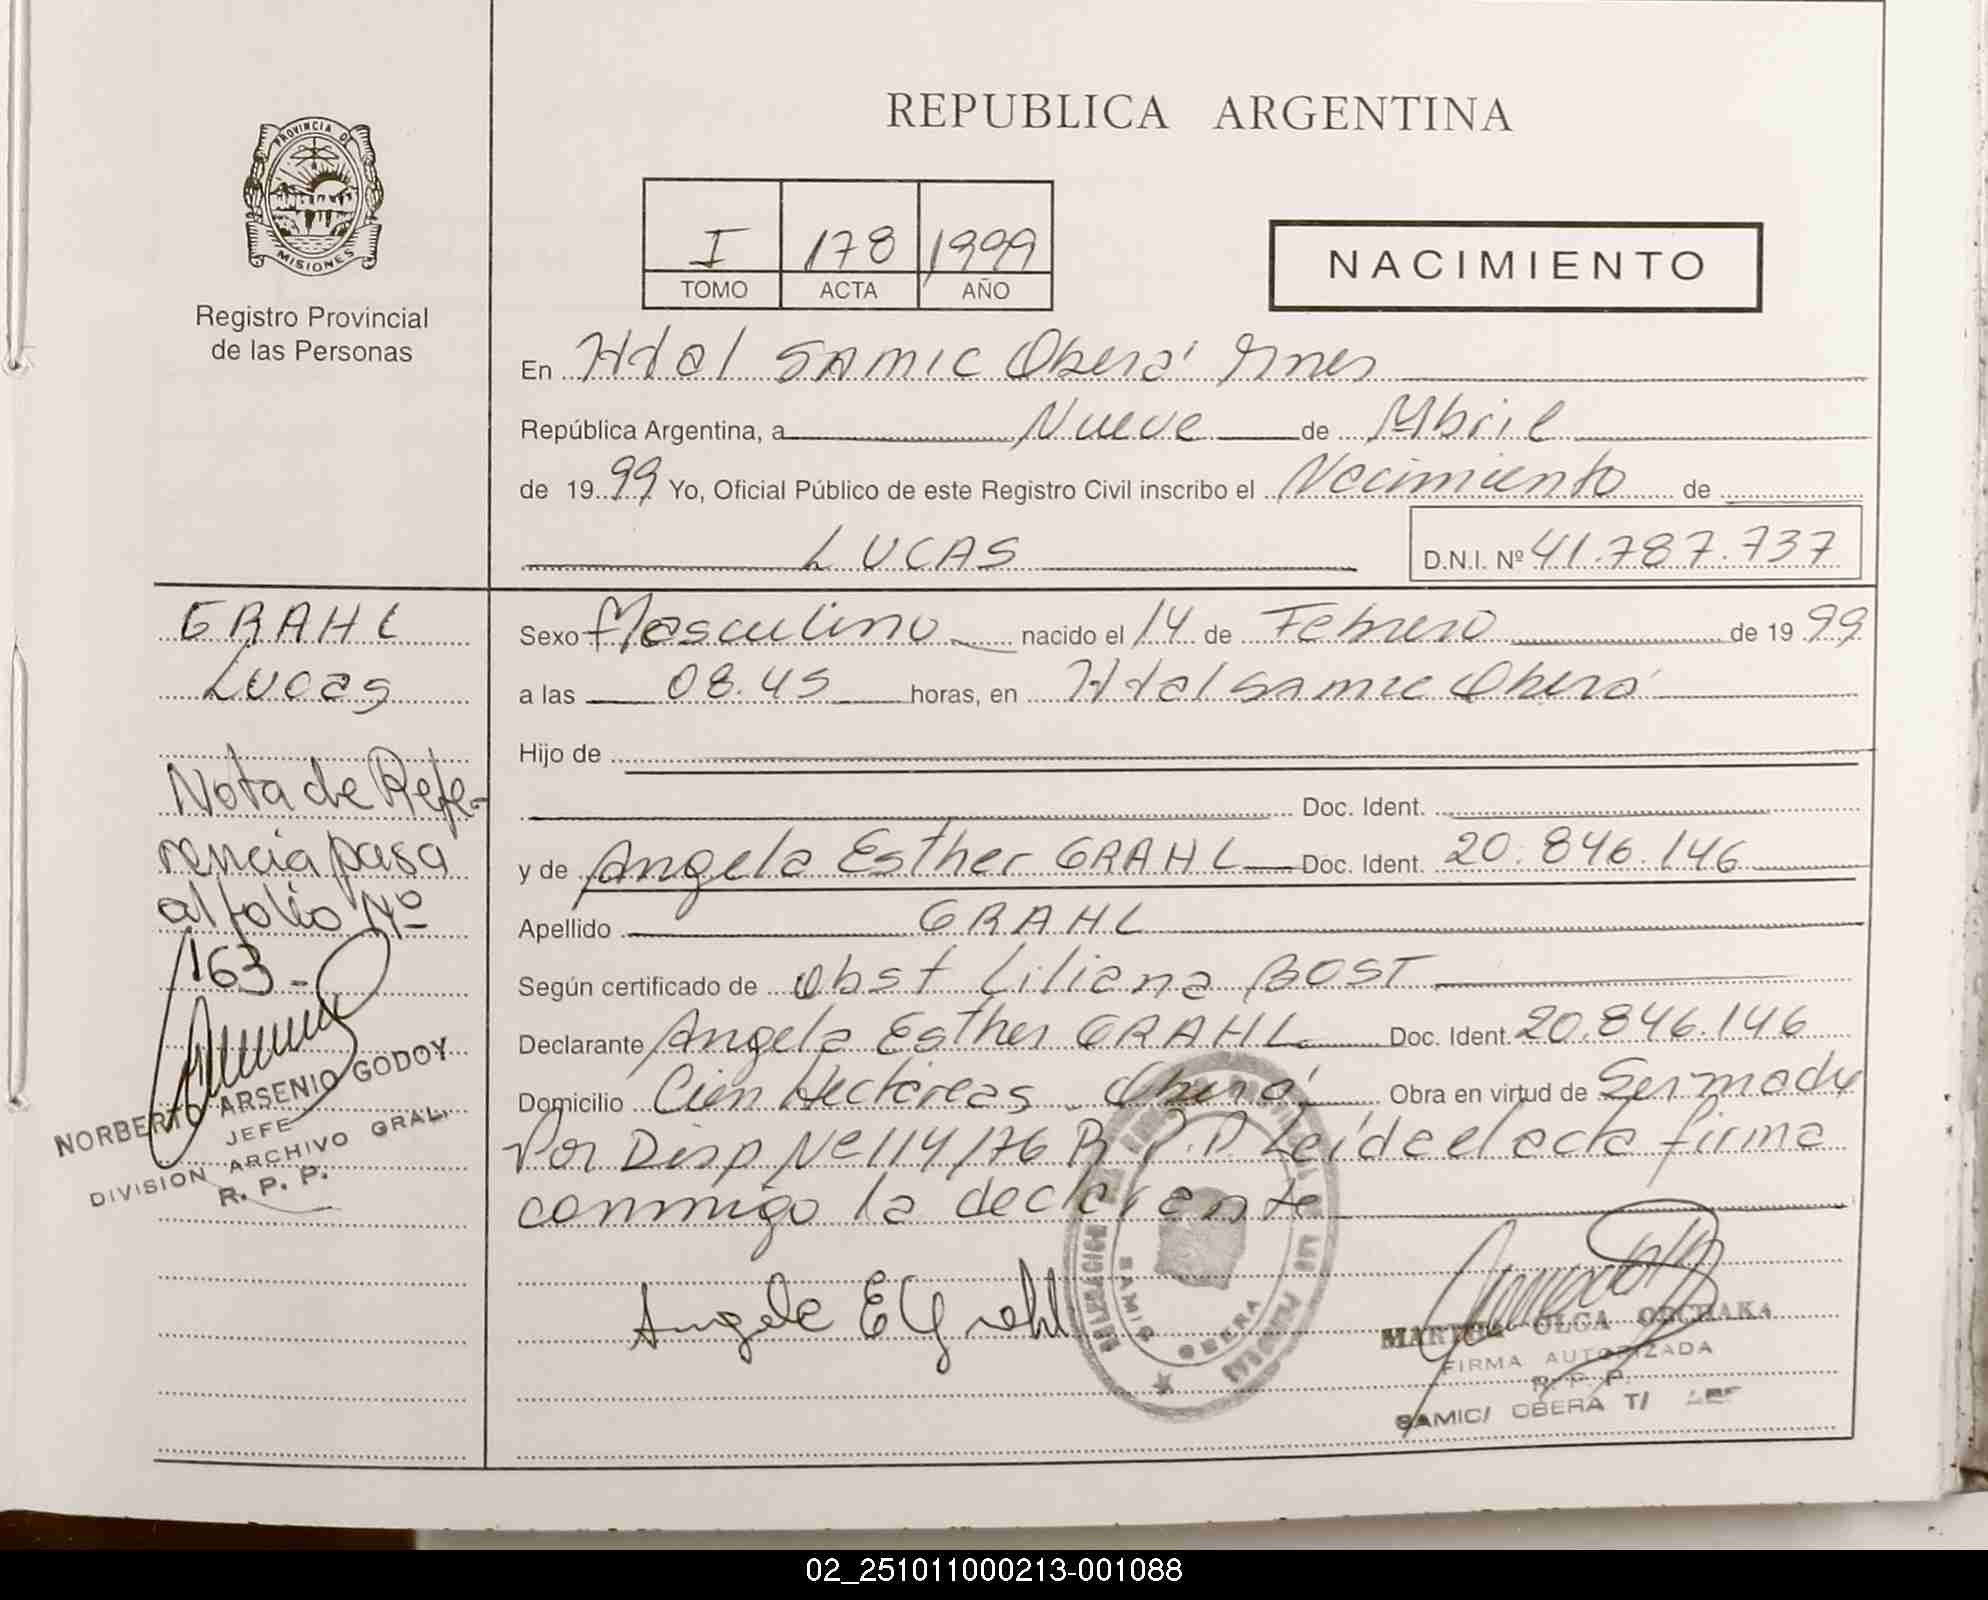 REPUBLICA ARGENTINA
PROVINCIA DE
MISIONES
Registro Provincial
de las Personas
I 178 1999
TOMO ACTA AÑO
NACIMIENTO
En Htal SAMIC Oberá Mnes
República Argentina, a Nueve de Abril
de 1999 Yo, Oficial Público de este Registro Civil inscribo el Nacimiento de
LUCAS D.N.I. Nº 41.787.737
GRAHL
Lucas
Nota de Refe-
rencia pasa
al folio Nº
163-
NORBERTO ARSENIO GODOY
JEFE
DIVISION ARCHIVO GRAL.
R. P. P.
Sexo Masculino nacido el 14 de Febrero de 1999
a las 08.45 horas, en Htal SAMIC Oberá
Hijo de
Doc. Ident.
y de Angela Esther GRAHL Doc. Ident. 20.846.146
Apellido GRAHL
Según certificado de Obst Liliana BOST
Declarante Angela Esther GRAHL Doc. Ident. 20.846.146
Domicilio Cien Hectáreas - Oberá Obra en virtud de Ser madre
Por Disp Nº 114/76 R.P.P. Leída el acta firma
conmigo la declarante
Angela E Grahl
DELEGACION
SAMIC OBERA
MARTHA OLGA
FIRMA AUTORIZADA
R. P. P.
SAMIC/ OBERA T/
02_251011000213-001088